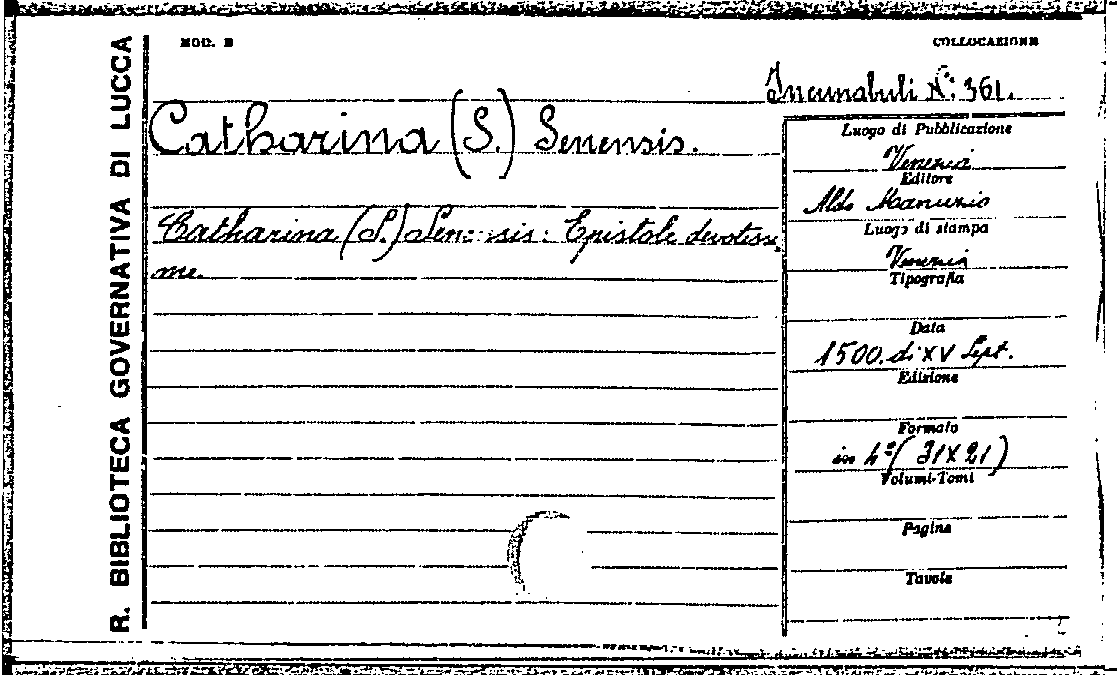 R. BIBLIOTECA GOVERNATIVA DI LUCCA
MOD. B
COLLOCAZIONE
Incunabuli N.: 361.
Catharina (S.) Senensis.
Catharina (S.) Senensis: Epistole devotissi
me.
Luogo di Pubblicazione
Venezia
Editore
Aldo Manuzio
Luogo di stampa
Venezia
Tipografia
Data
1500. di XV Sept.
Edizione
Formato
in 4º (31X21)
Volumi-Tomi
Pagine
Tavole